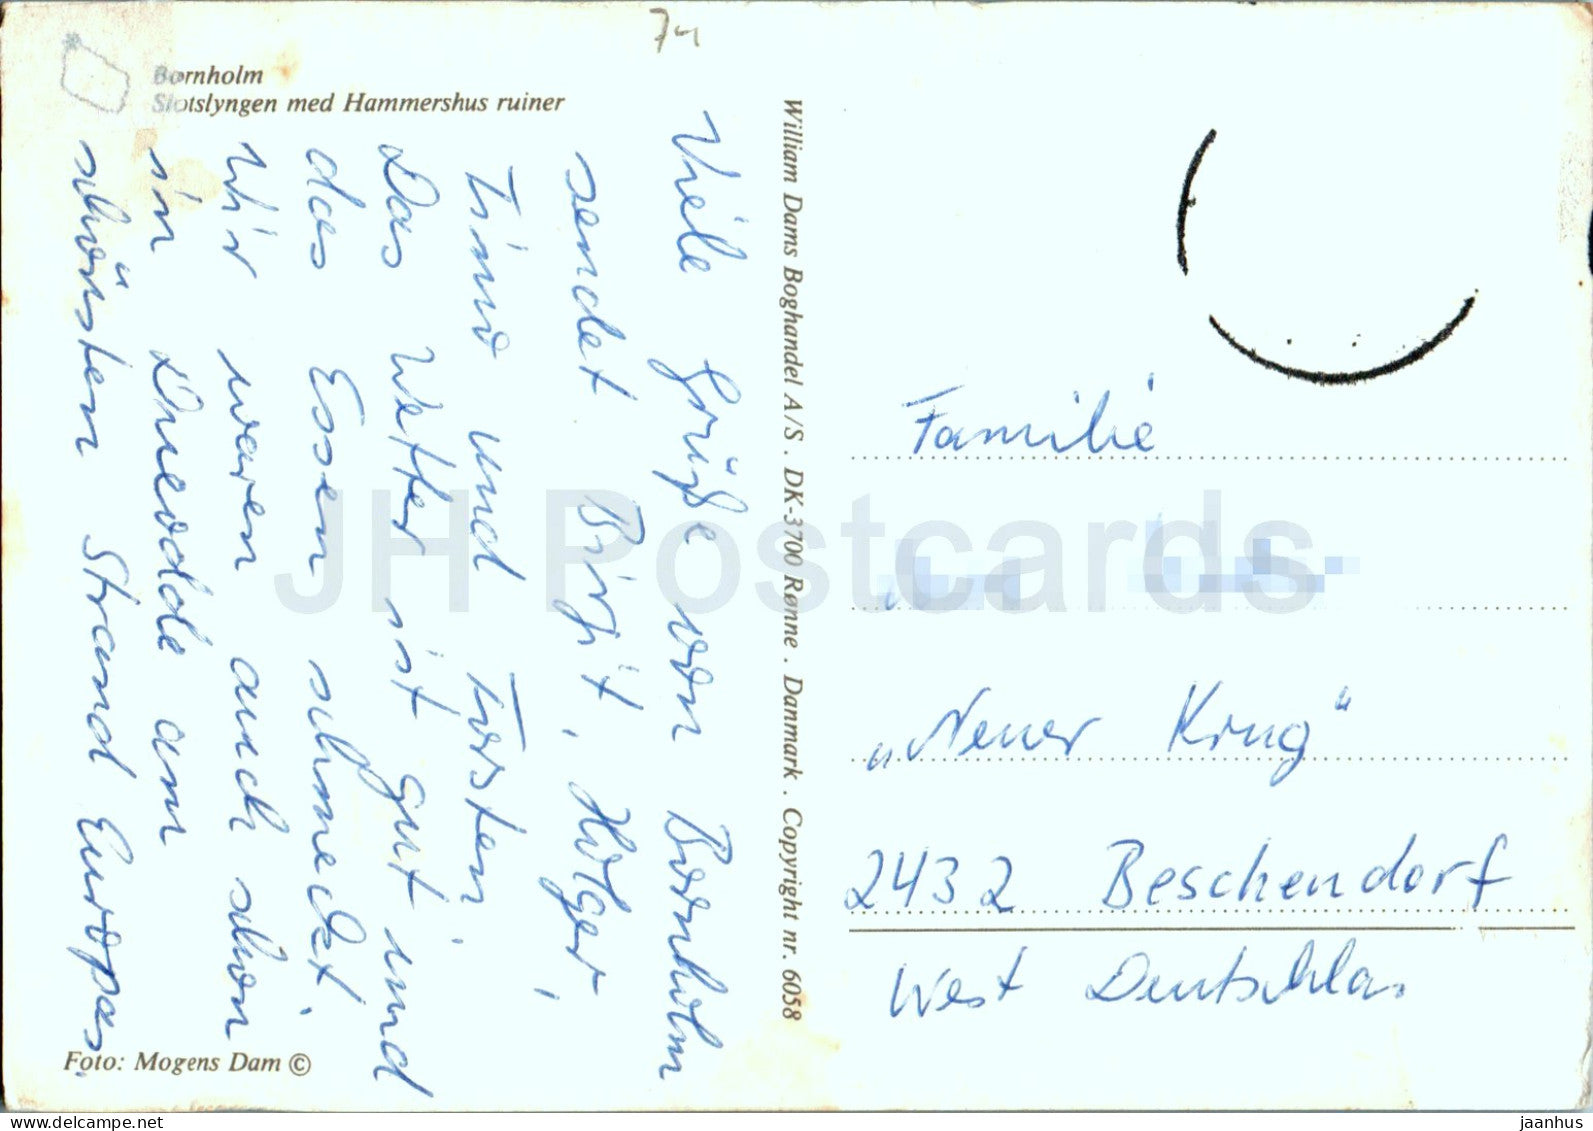 74
Bornholm
Slotslyngen med Hammershus ruiner
Viele Grüße von Bornholm
sendet Birgit, Holger,
Timo und Torsten.
Das Wetter ist gut und
das Essen schmeckt.
Wir waren auch schon
in Dueodde am
schönsten Strand Europas.
Foto: Mogens Dam ©
William Dams Boghandel A/S . DK-3700 Rønne . Danmark . Copyright nr. 6058
Familie
„Neuer Krug“
2432 Beschendorf
West Deutschla.
JH Postcards
www.delcampe.net
jaanhus